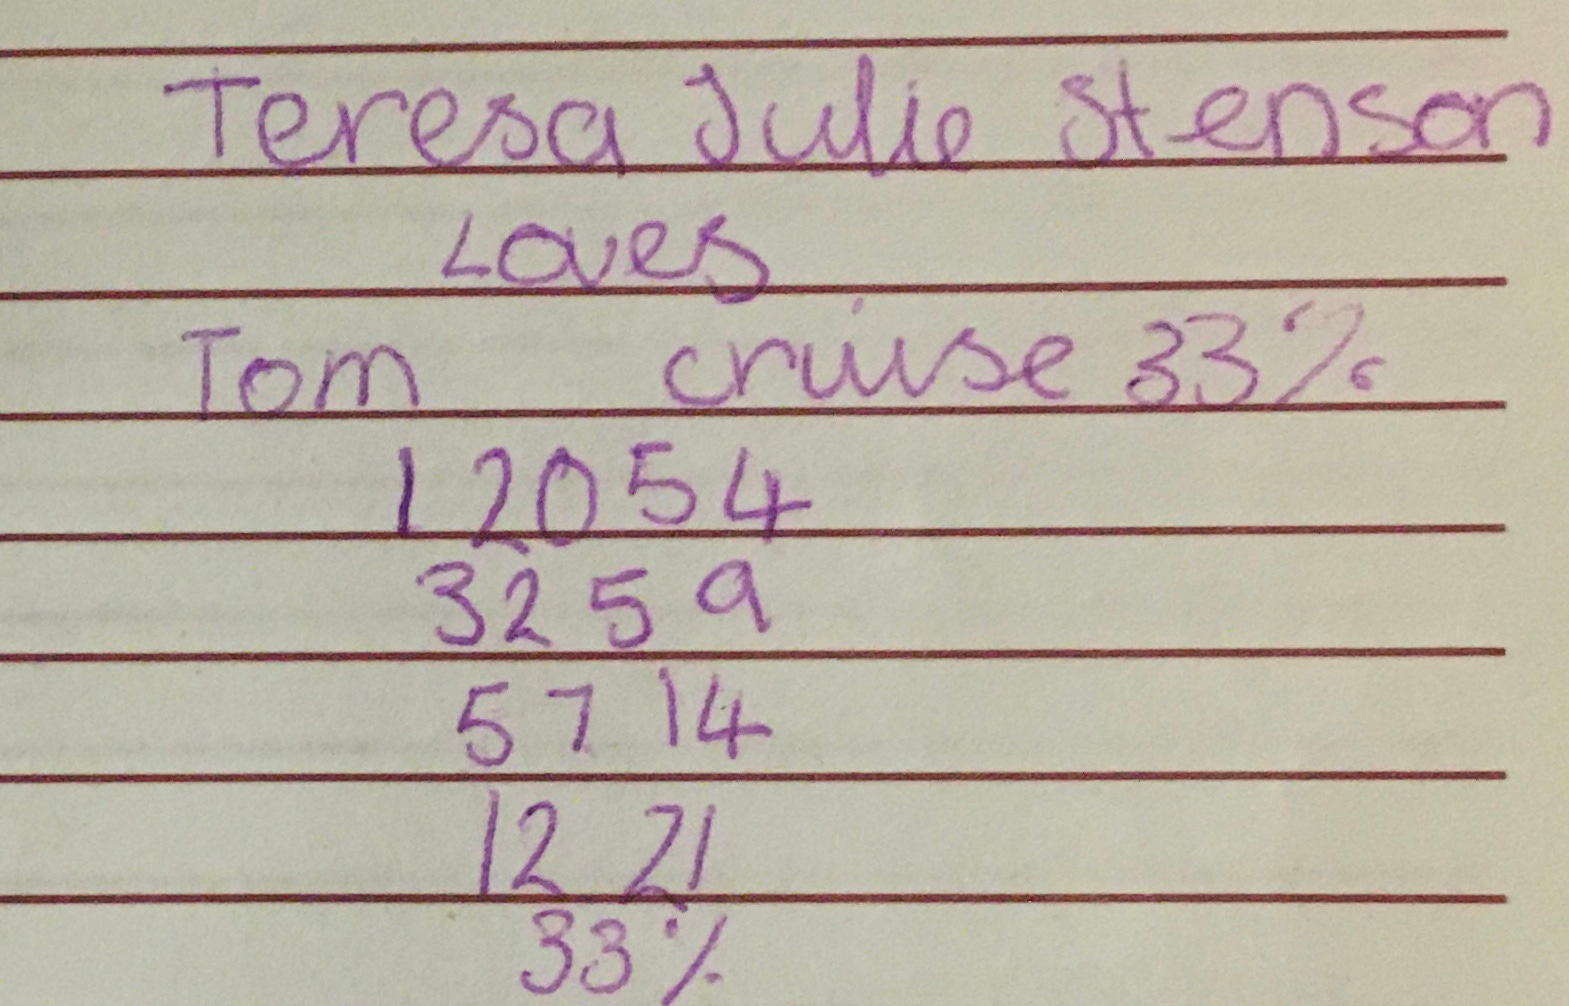 Teresa Julie Stenson
Loves
Tom cruise 33%
1 2 0 5 4
3 2 5 9
5 7 14
12 21
33%